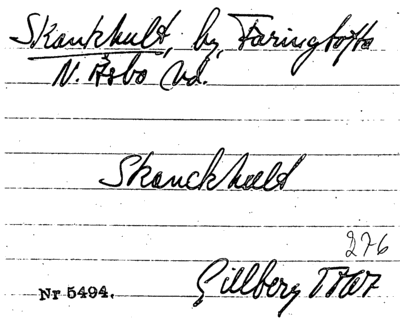 Skankhult, by, Färingtofta
N. Åsbo hd.
Skanckhult
276
Gillberg
Nr 5494.